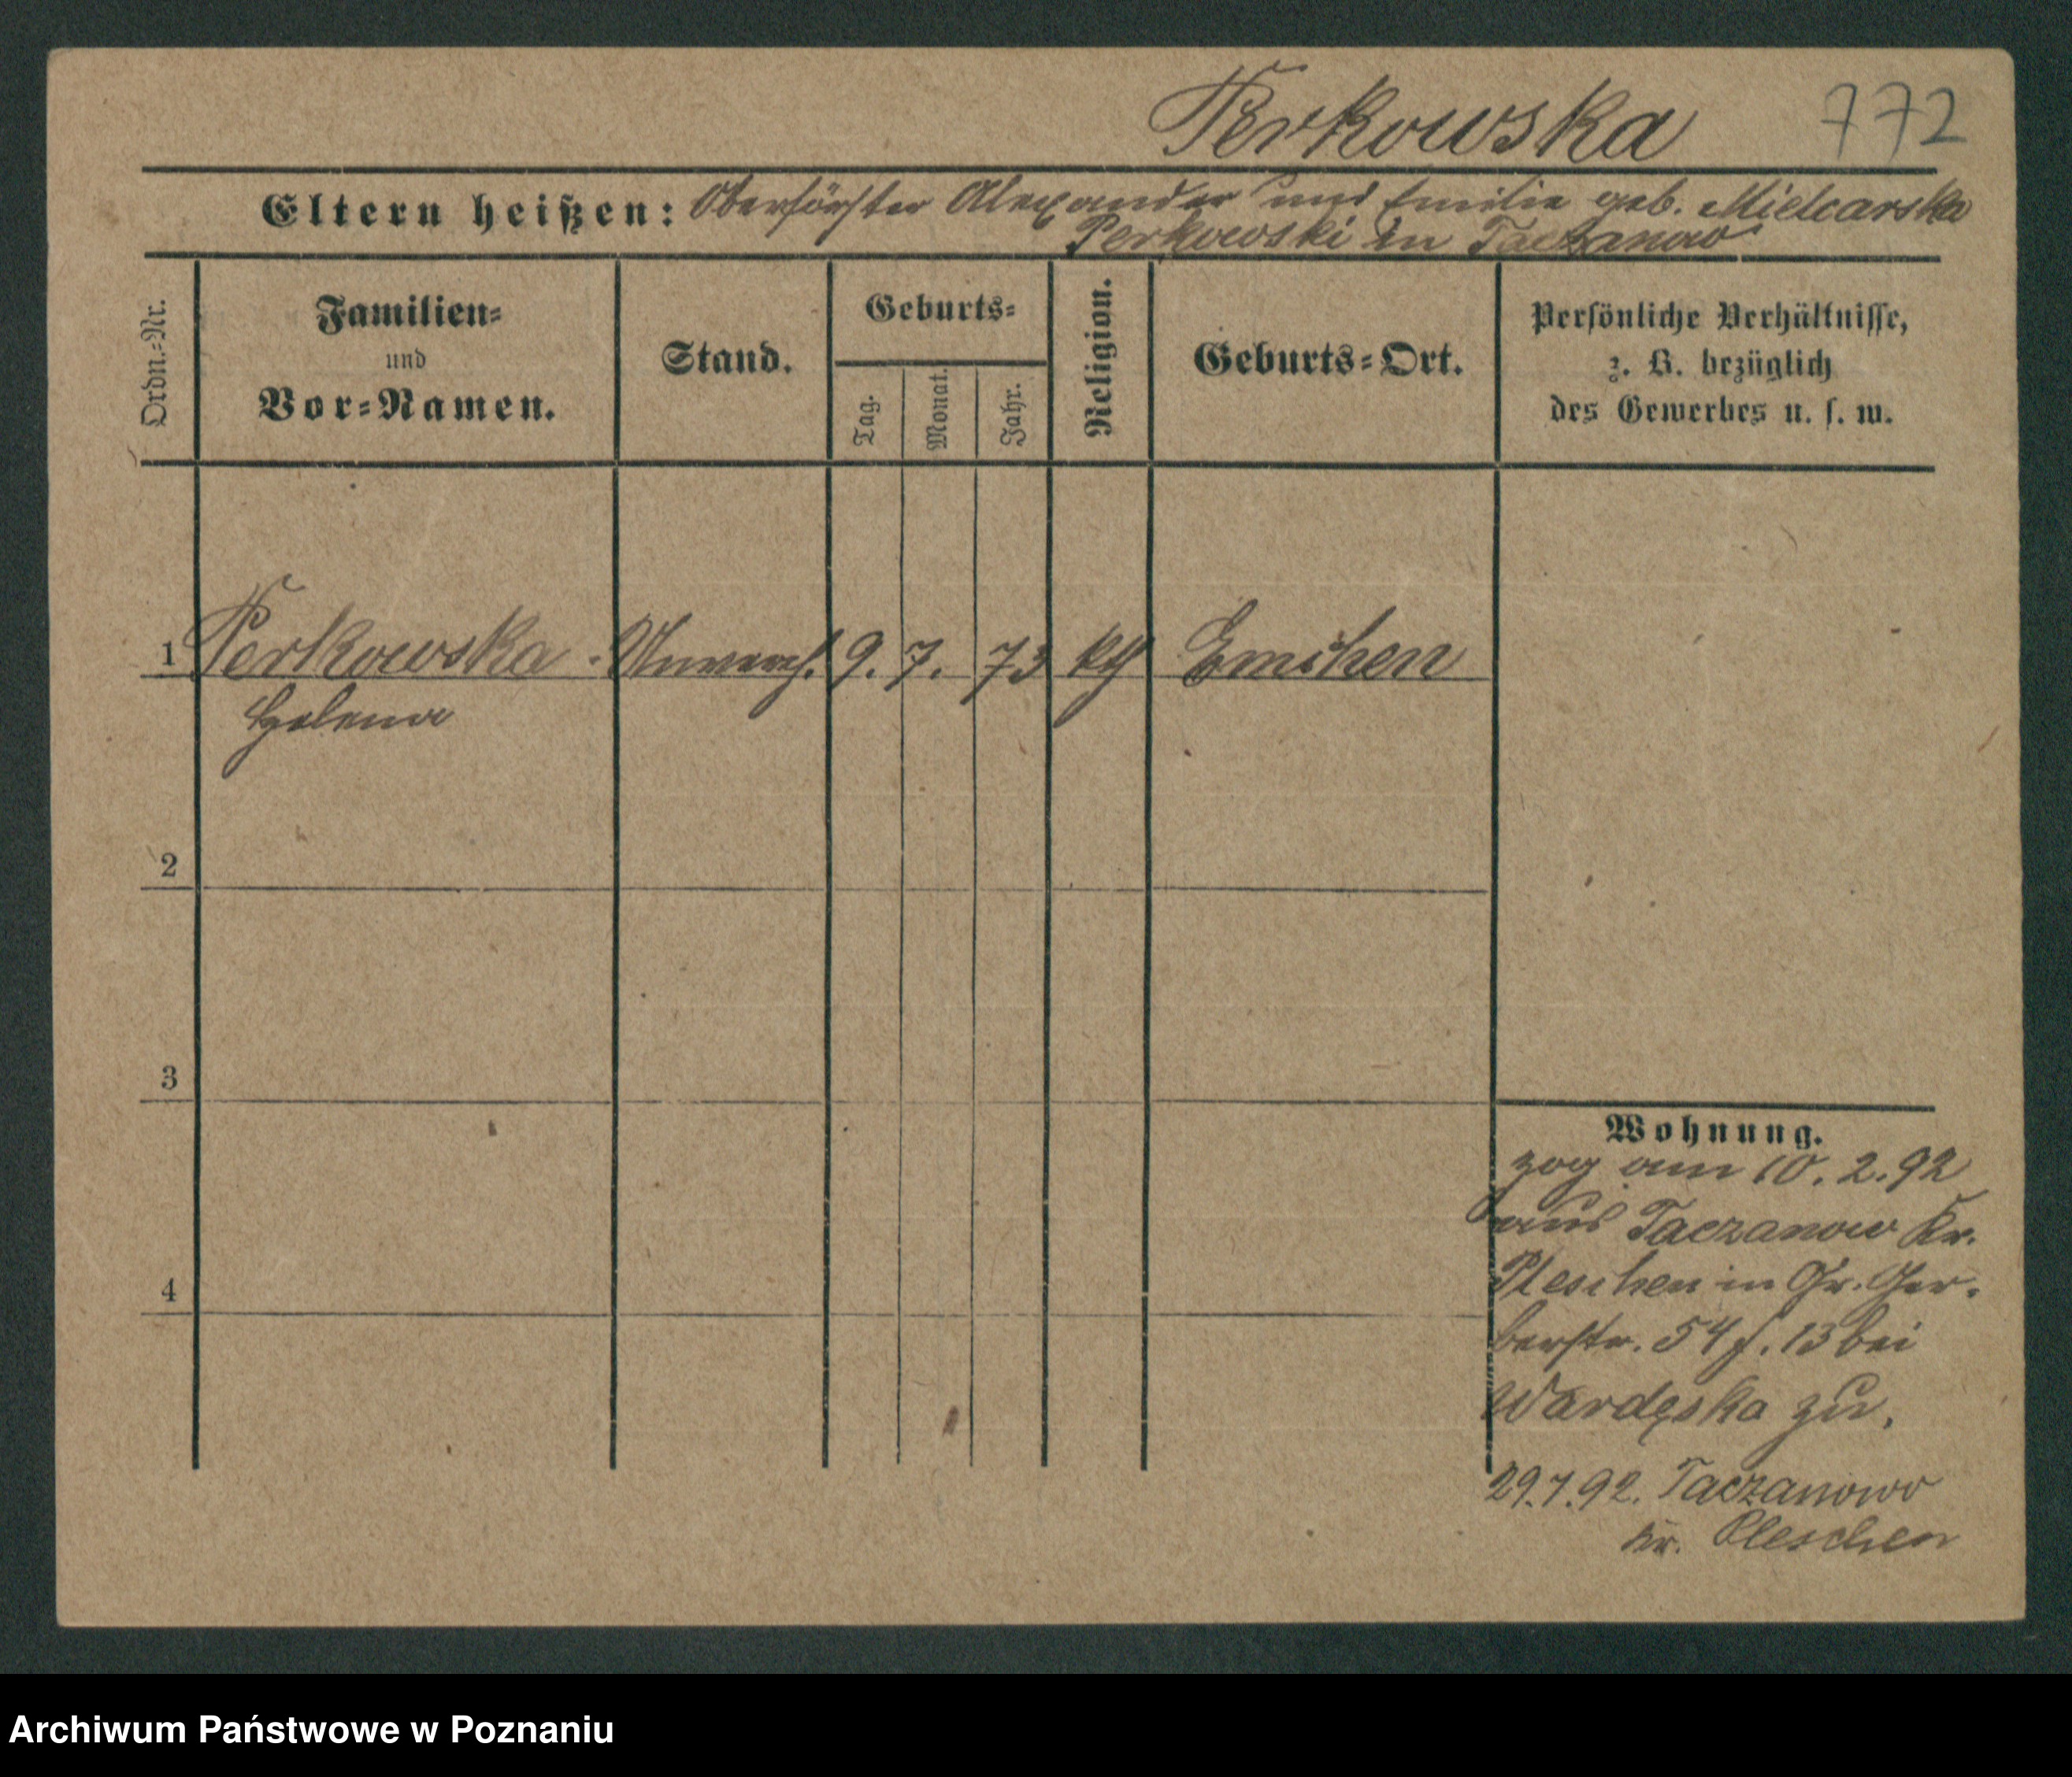 Perkowska 772
Eltern heißen: Oberförster Alexander und Emilie geb. Mielcarska
Perkowski in Taczanow
Ordn.-Nr.
Familien-
und
Vor-Namen.
Stand.
Geburts-
Tag.
Monat.
Jahr.
Religion.
Geburts-Ort.
Persönliche Verhältnisse,
z. B. bezüglich
des Gewerbes u. s. w.
1 Perkowska Unverh. 9. 7. 73 kth Emchen
Helena
2
3
4
Wohnung.
zog am 10. 2. 92
aus Taczanow Kr.
Pleschen in Gr. Ger-
berstr. 54 f. 13 bei
Wardęska zu.
29.7.92. Taczanowo
Kr. Pleschen
Archiwum Państwowe w Poznaniu